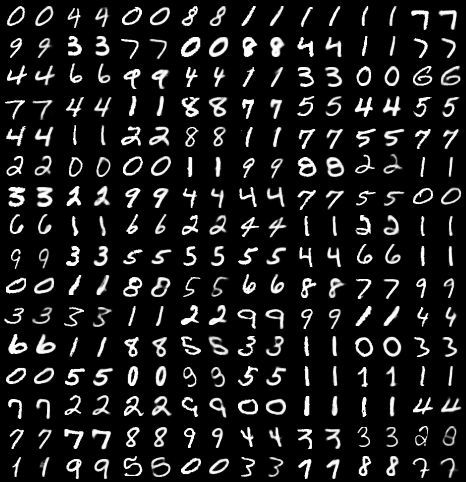 0 0 4 4 0 0 8 8 1 1 1 1 1 1 7 7
9 9 3 3 7 7 0 0 8 8 4 4 1 1 7 7
4 4 6 6 9 9 4 4 1 1 3 3 0 0 6 6
7 7 4 4 1 1 8 8 7 7 5 5 4 4 5 5
4 4 1 1 2 2 8 8 1 1 7 7 5 5 7 7
2 2 0 0 0 0 1 1 9 9 8 8 2 2 1 1
3 3 2 2 9 9 4 4 4 4 7 7 5 5 0 0
6 6 1 1 6 6 2 2 4 4 1 1 2 2 1 1
9 9 3 3 5 5 5 5 5 5 4 4 6 6 1 1
0 0 1 1 8 8 5 5 6 6 8 8 7 7 9 9
3 3 3 3 1 1 2 2 9 9 9 9 1 1 4 4
6 6 1 1 8 8 5 5 3 3 1 1 0 0 3 3
0 0 5 5 0 0 9 9 5 5 1 1 1 1 1 1
7 7 2 2 2 2 9 9 0 0 1 1 1 1 4 4
7 7 7 7 8 8 9 9 4 4 3 3 3 3 2 8
1 1 9 9 5 5 0 0 3 3 1 1 8 8 7 7